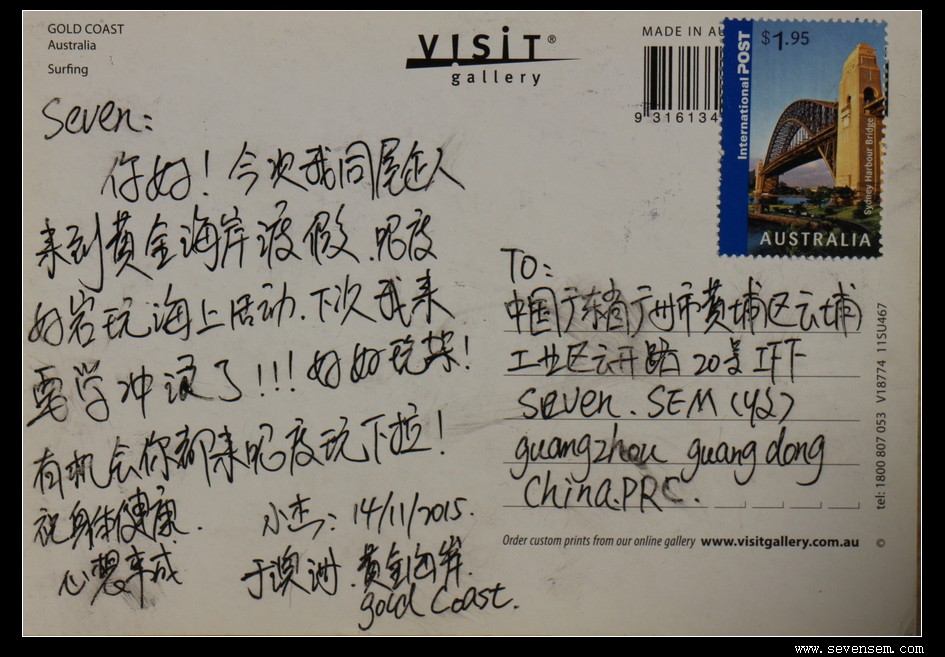 GOLD COAST
Australia
Surfing
VISIT®
gallery
MADE IN AU
9 316134
$1.95
International POST
Sydney Harbour Bridge
AUSTRALIA
Seven:
你好！今次我同屋企人
来到黄金海岸渡假.呢度
好岩玩海上活动.下次我来
要学冲浪了!!!好好玩架!
有机会你都来呢度玩下拉!
祝身体健康.
心想事成
小杰: 14/11/2015.
于澳洲.黄金海岸.
gold Coast.
TO:
中国广东省广州市黄埔区云埔
工业区云开路20号1FF
Seven.SEM(YS)
guangzhou guangdong
China.PRC.
Order custom prints from our online gallery www.visitgallery.com.au ©
tel: 1800 807 053 V18774 11SU467
www.sevensem.com